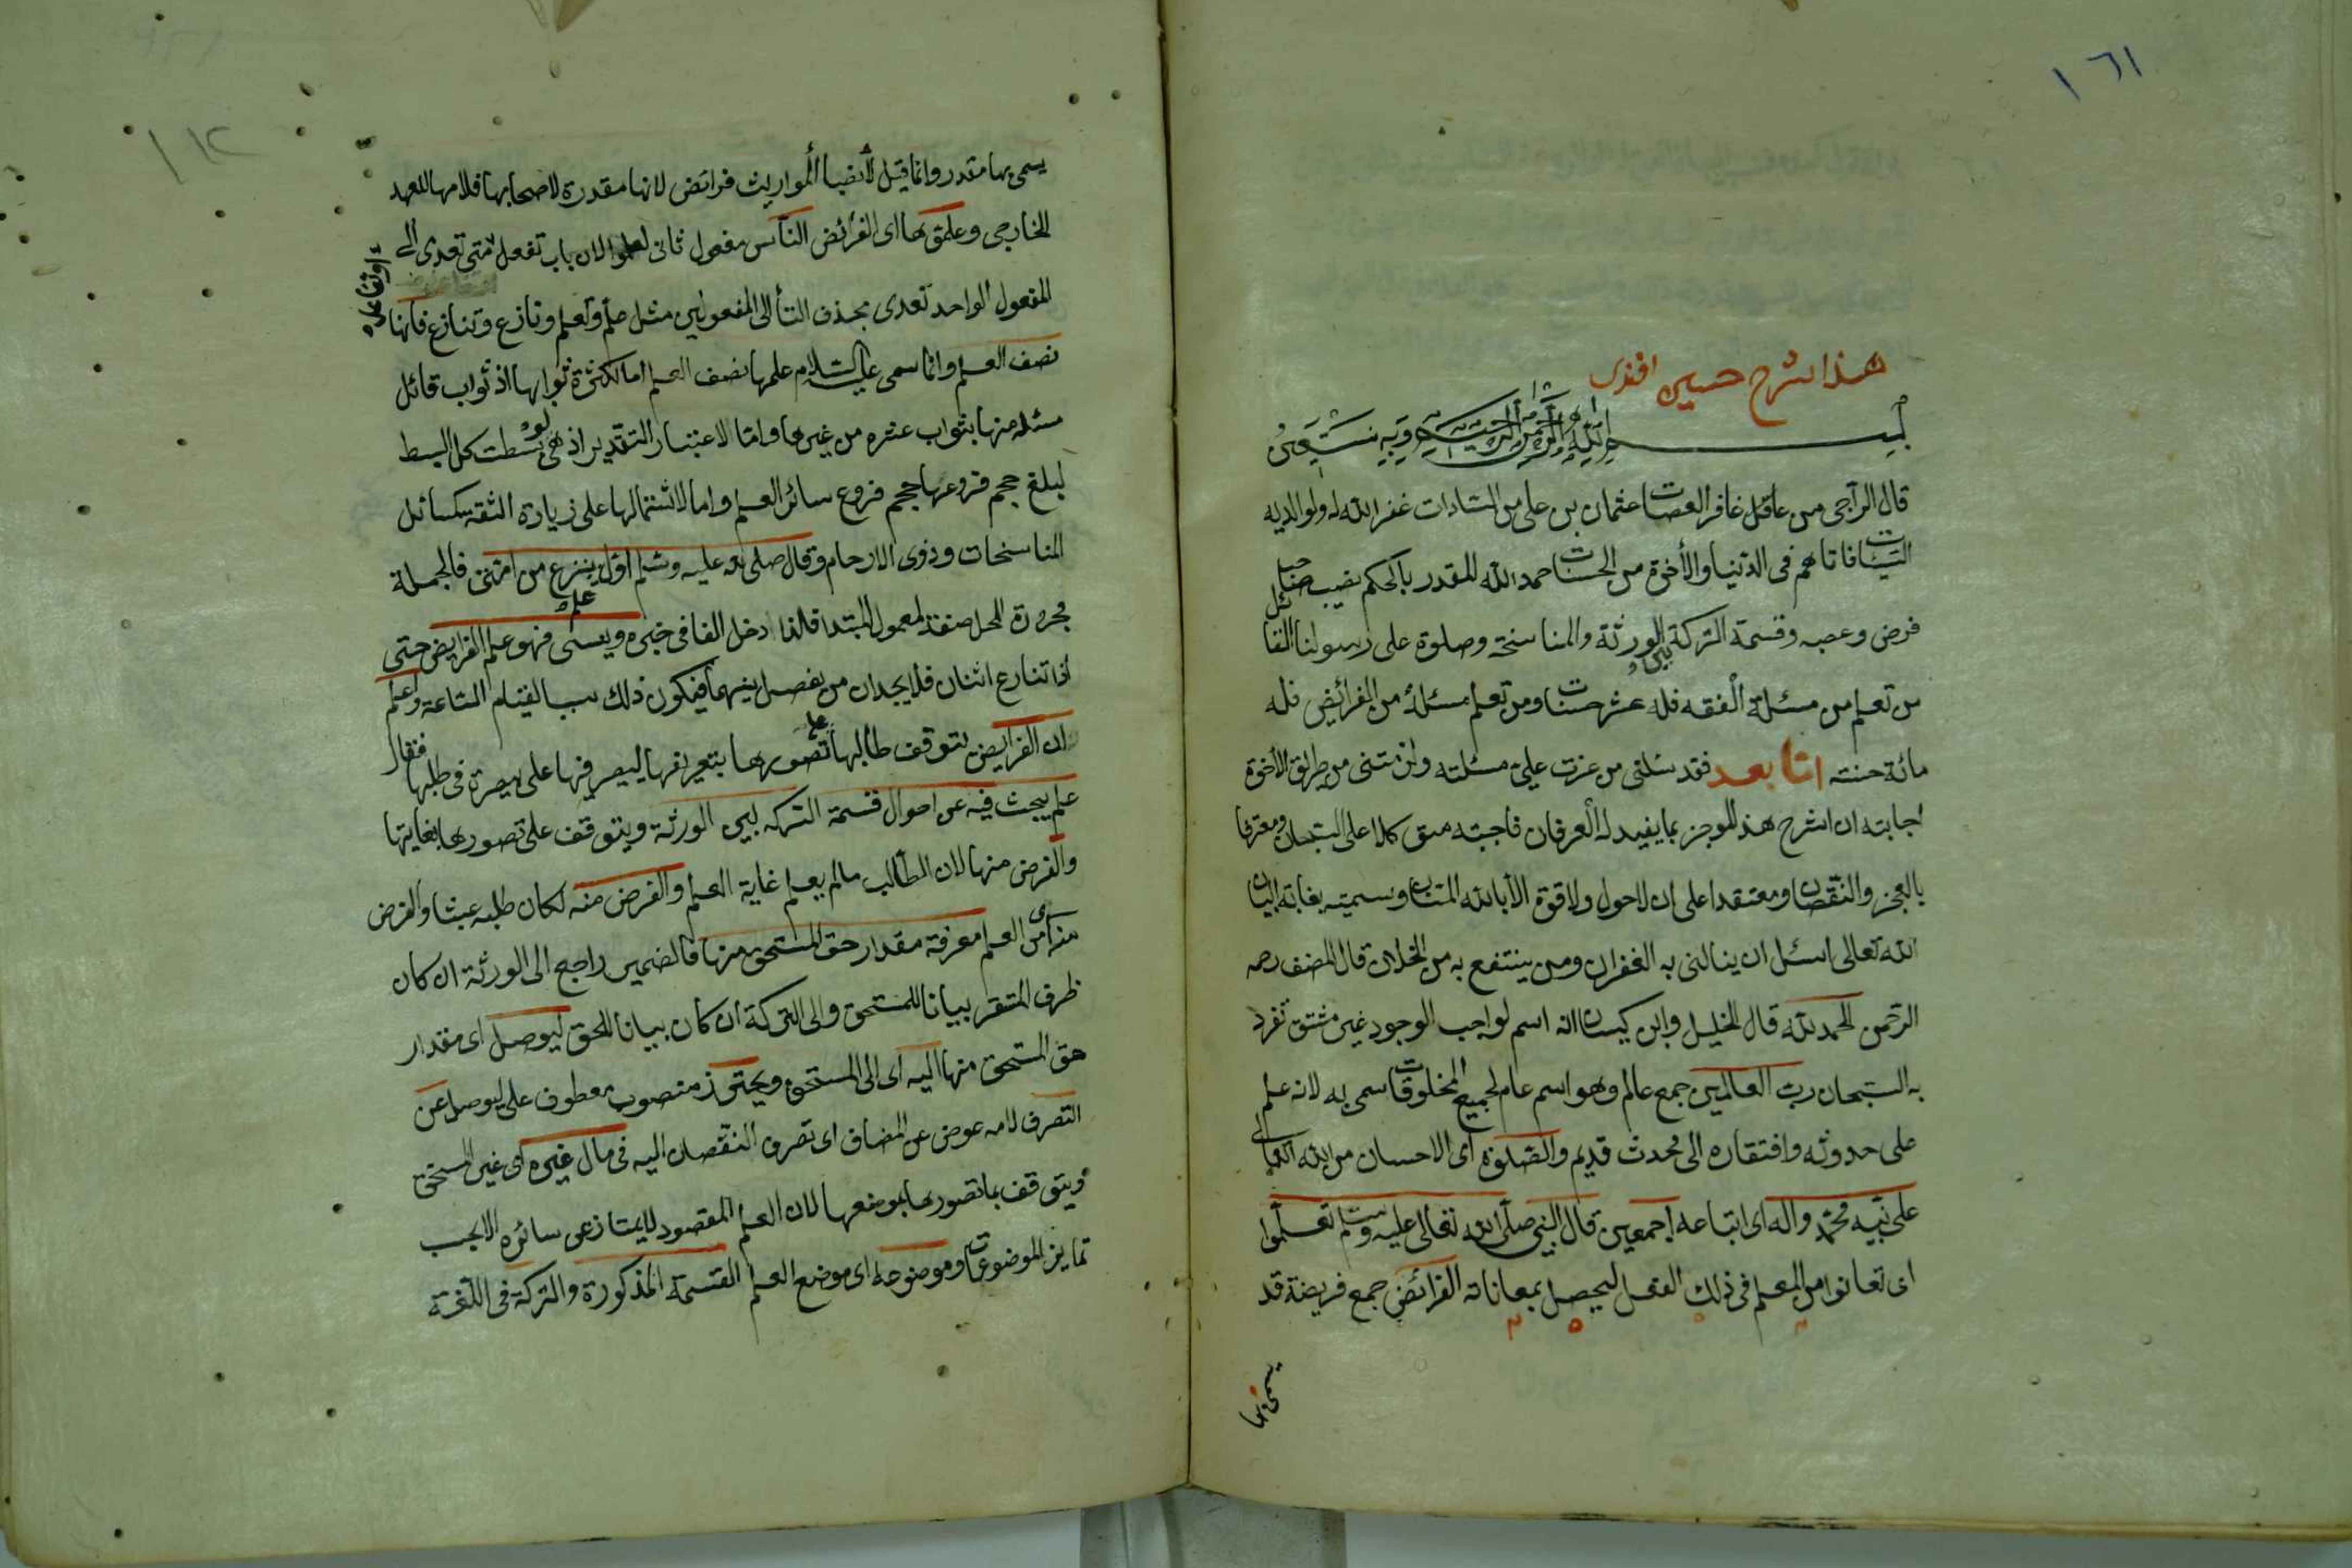 ١٦١
هذا شرح حسين افندى
بسم الله الرحمن الرحيم وبه نستعين
قال الراجى من عاقل غافر العصات عثمان بن على من السادات غفر الله له ولوالديه
السيئات فاتاهم فى الدنيا والأخرة من الحسنات حمد الله المقدر بالحكم نصيب صاحب
فرض وعصبه وقسمة التركة بين الورثة والمناسخة وصلوة على رسولنا القائل
من تعلم من مسئلة الفقه فله عشر حسنات ومن تعلم مسئلة من الفرائض فله
مائة حسنته امّا بعد فقد سئلنى من عزت علىّ مسئلته من طريق الأخوة
اجابته ان اشرح هذ الموجز بما يفيد له العرفان فاجبته متوكلا على السبحان ومعترفا
بالعجز والنقصان ومعتقدا على ان لاحول ولاقوة الا بالله المنان وسميته بغاية البيان
الله تعالى اسئل ان ينالنى به الغفران ومن ينتفع به من الخلان قال المصنف رحمه
الرحمن الحمد لله قال الخليل وابن كيسان انه اسم لواجب الوجود غير مشتق تفرد
به السبحان رب العالمين جمع عالم وهو اسم عام لجميع المخلوقات سمى به لانه علم
على حدوثه وافتقاره الى محدث قديم والصلوة اى الاحسان من الله تعالى
على نبيه محمّد واله اى اتباعه اجمعين قال النبى صلّى الله تعالى عليه وسلم تعلّموا
اى تعانوا من المعلم فى ذلك الفعل ليحصل بمعاناته الفرائض جمع فريضة قد
١١٢
يسمى بها مقدر وانما قيل لأنصباء المواريث فرائض لانها مقدرة لاصحابها فلامها للعهد
الخارجى وعلّموها اى الفرائض الناس مفعول ثانى لعلموا لان باب تفعل متى تعدى الى
او تفاعل
المفعول الواحد تعدى بحذف التاء الى المفعولين مثل علّم وتعلم ونازع وتنازع فانها
نصف العلم وانما سمى عليه السلام علمها نصف العلم اما لكثرة ثوابها اذ ثواب قائل
مسئلة منها بثواب عشره من غيرها واما لاعتبار التقدير اذ هى لو بسطت كل البسط
لبلغ حجم فروعها حجم فروع سائر العلم واما لاشتمالها على زيارة الثقه كسائل
المناسخات وذوى الارحام وقال صلى الله عليه وسلم اوّل ينزع من امتى فالجملة
مجرورة المحل صفة لمعمول المبتدا فلذا دخل الفا فى خبره ويسمى فهو علم الفرايض حتى
اذا تنازع اثنان فلا يجدان من يفصل بينهما فيكون ذلك سببا لقيام الساعة واعلم
ان الفرايض يتوقف طالبها على تصورها بتعريفها ليصرفها على بصيرة فى طلبها فقال
علم يبحث فيه عن احوال قسمة التركه بين الورثة ويتوقف على تصورها بغايتها
والغرض منها لان الطالب مالم يعلم غاية العلم والغرض منه لكان طلبه عبثا والغرض
منه اى من العلم معرفة مقدار حق المستحق منها فالضمير راجع الى الورثة ان كان
ظرف المتقر بيانا للمستحق والى التركة ان كان بيانا للحق ليوصل اى مقدار
حق المستحق منها اليه اى الى المستحق ويحترز منصوب معطوف على ليوصل عن
التصرف لامه عوض عن المضاف اى تصرف النقصان اليه فى مال غيره اى غير المستحق
ويتوقف بما تصورها بموضعها لان العلم المقصود لايمتاز عن سائره الا بجب
تمايز الموضوعات وموضوعه اى موضع العلم القسمة المذكورة والتركة فى اللغة